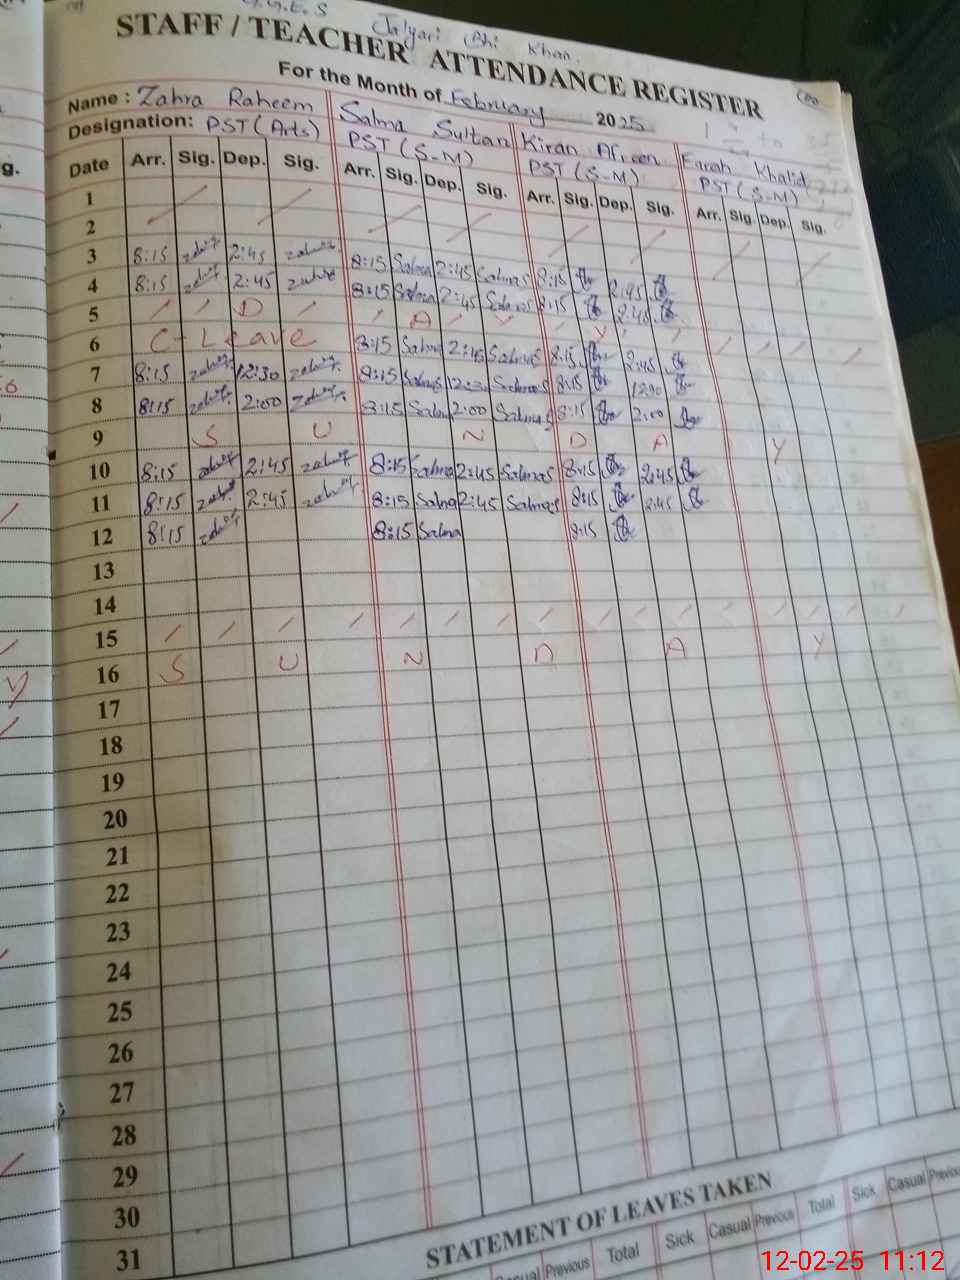 G.G.E.S Jalyari Bhi Khan.
STAFF / TEACHER ATTENDANCE REGISTER
For the Month of February 2025
Name : Zahra Raheem Salma Sultan Kiran Afreen Farah Khalid
Designation: PST (Arts) PST (S-M) PST (S-M) PST (S-M)
Date Arr. Sig. Dep. Sig. Arr. Sig. Dep. Sig. Arr. Sig. Dep. Sig. Arr. Sig. Dep. Sig.
1
2
3 8:15 2:45 8:15 Salma 2:45 Salmas 8:15 2:45
4 8:15 2:45 8:15 Salma 2:45 Salmas 8:15 2:45
5 D A Y
6 C-Leave 8:15 Salma 2:45 Salmas 8:15 2:45
7 8:15 12:30 8:15 Salmas Salmas 8:15 1230
8 8:15 2:00 8:15 Salma 2:00 Salmas 8:15 2:00
9 S U N D A Y
10 8:15 2:45 8:15 Salma 2:45 Salmas 8:15 2:45
11 8:15 2:45 8:15 Salma 2:45 Salmas 8:15 2:45
12 8:15 8:15 Salma 8:15
13
14
15
16 S U N D A Y
17
18
19
20
21
22
23
24
25
26
27
28
29
30
31
STATEMENT OF LEAVES TAKEN
Casual Previous Total Sick Casual Previous Total Sick Casual Previous
12-02-25 11:12